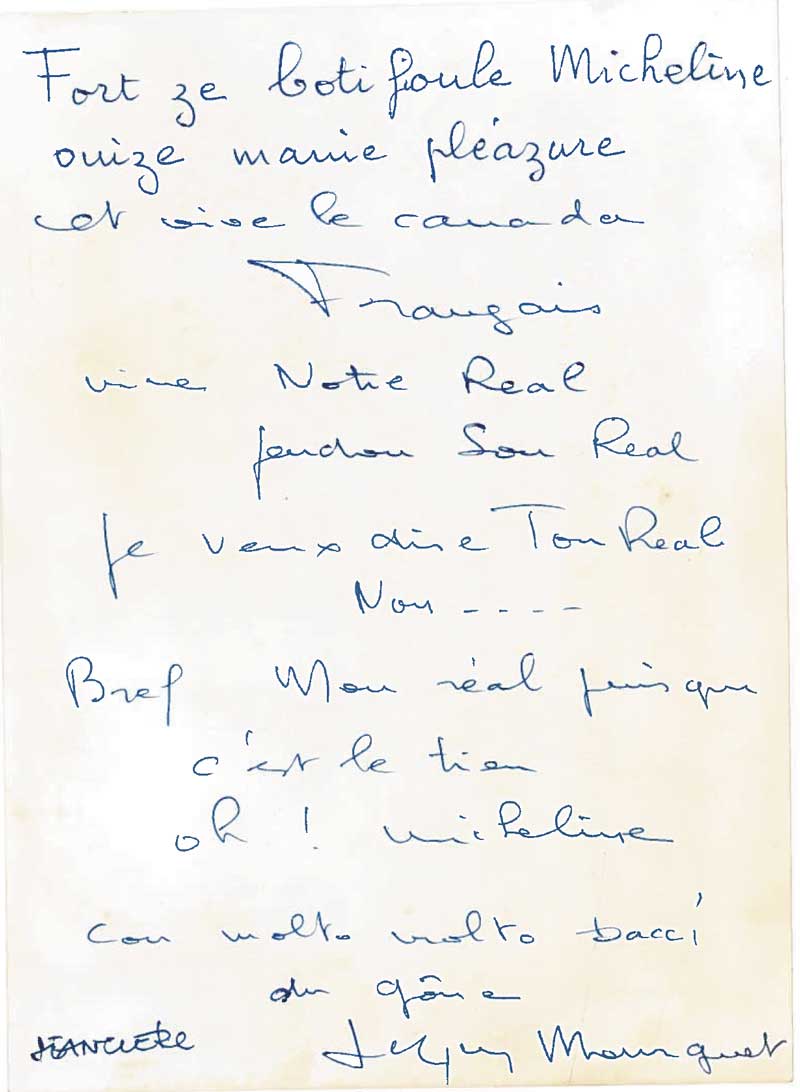 Fort ze botifoule Micheline
ouize manie pléazure
et vive le canada
Français
vive Notre Real
pardon Son Real
Je veux dire Ton Real
Non ----
Bref Mon réal puisque
c'est le tien
oh ! Micheline
con molto molto bacci
du gône
Jacques Mourguet